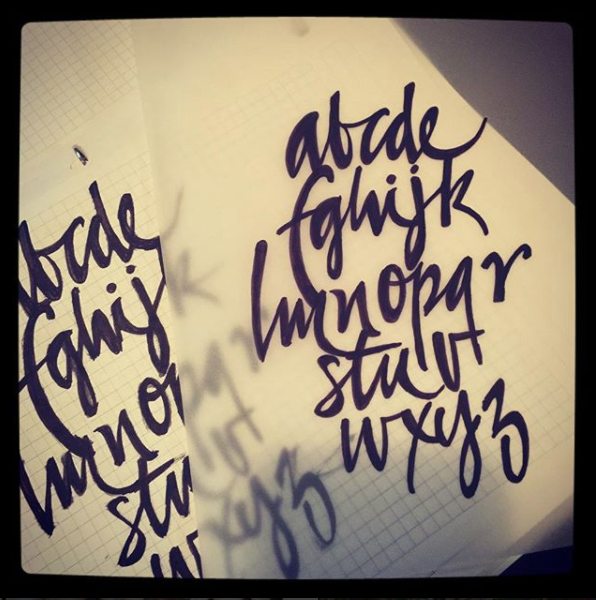 abcde
fghijk
lmnopqr
stuv
wxyz
abcde
fghijk
lmnopqr
stuv
wxyz